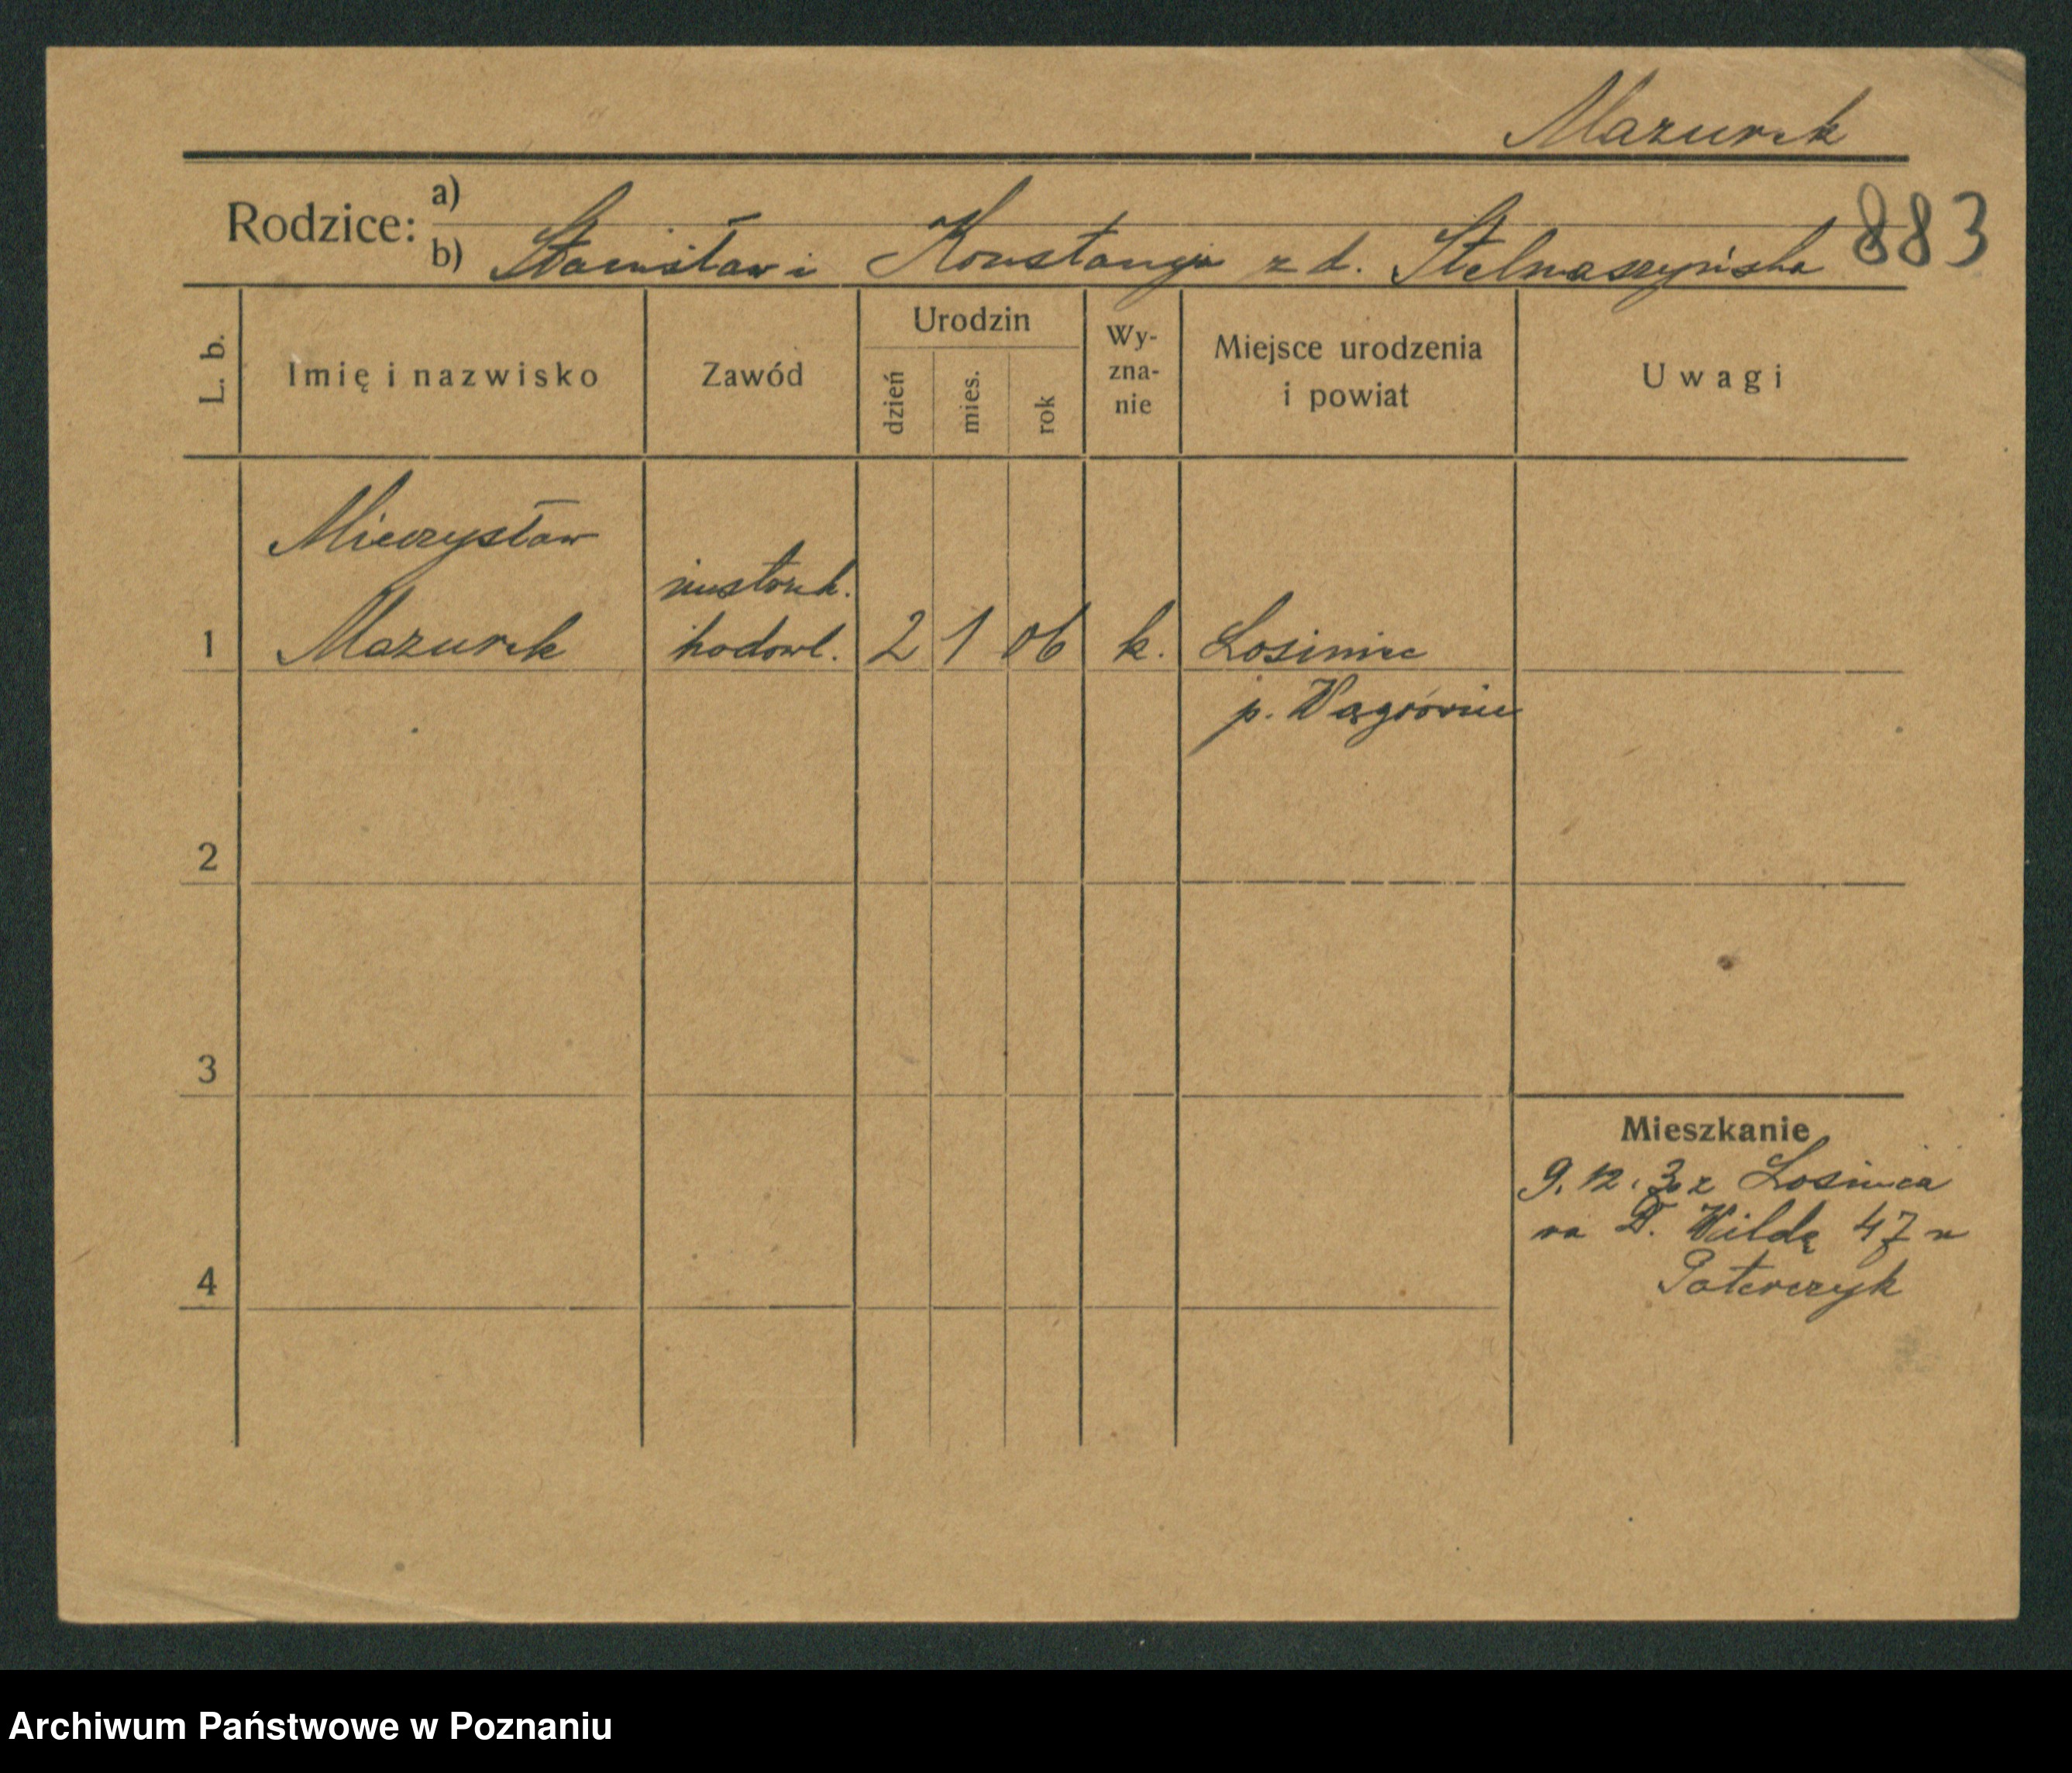 Mazurek
883
Rodzice:
a)
b) Stanisław i Konstancja z d. Stelmaszyńska
L. b.
Imię i nazwisko
Zawód
Urodzin
dzień
mies.
rok
Wy-
zna-
nie
Miejsce urodzenia
i powiat
Uwagi
Mieczysław
hodowl.
1 Mazurek 2 1 06 k. Łosiniec
p. Wągrówiec
2
3
4
Mieszkanie
9. 12. 30 z Łosińca
na D. Wildę 47 u
Paterczyk
Archiwum Państwowe w Poznaniu